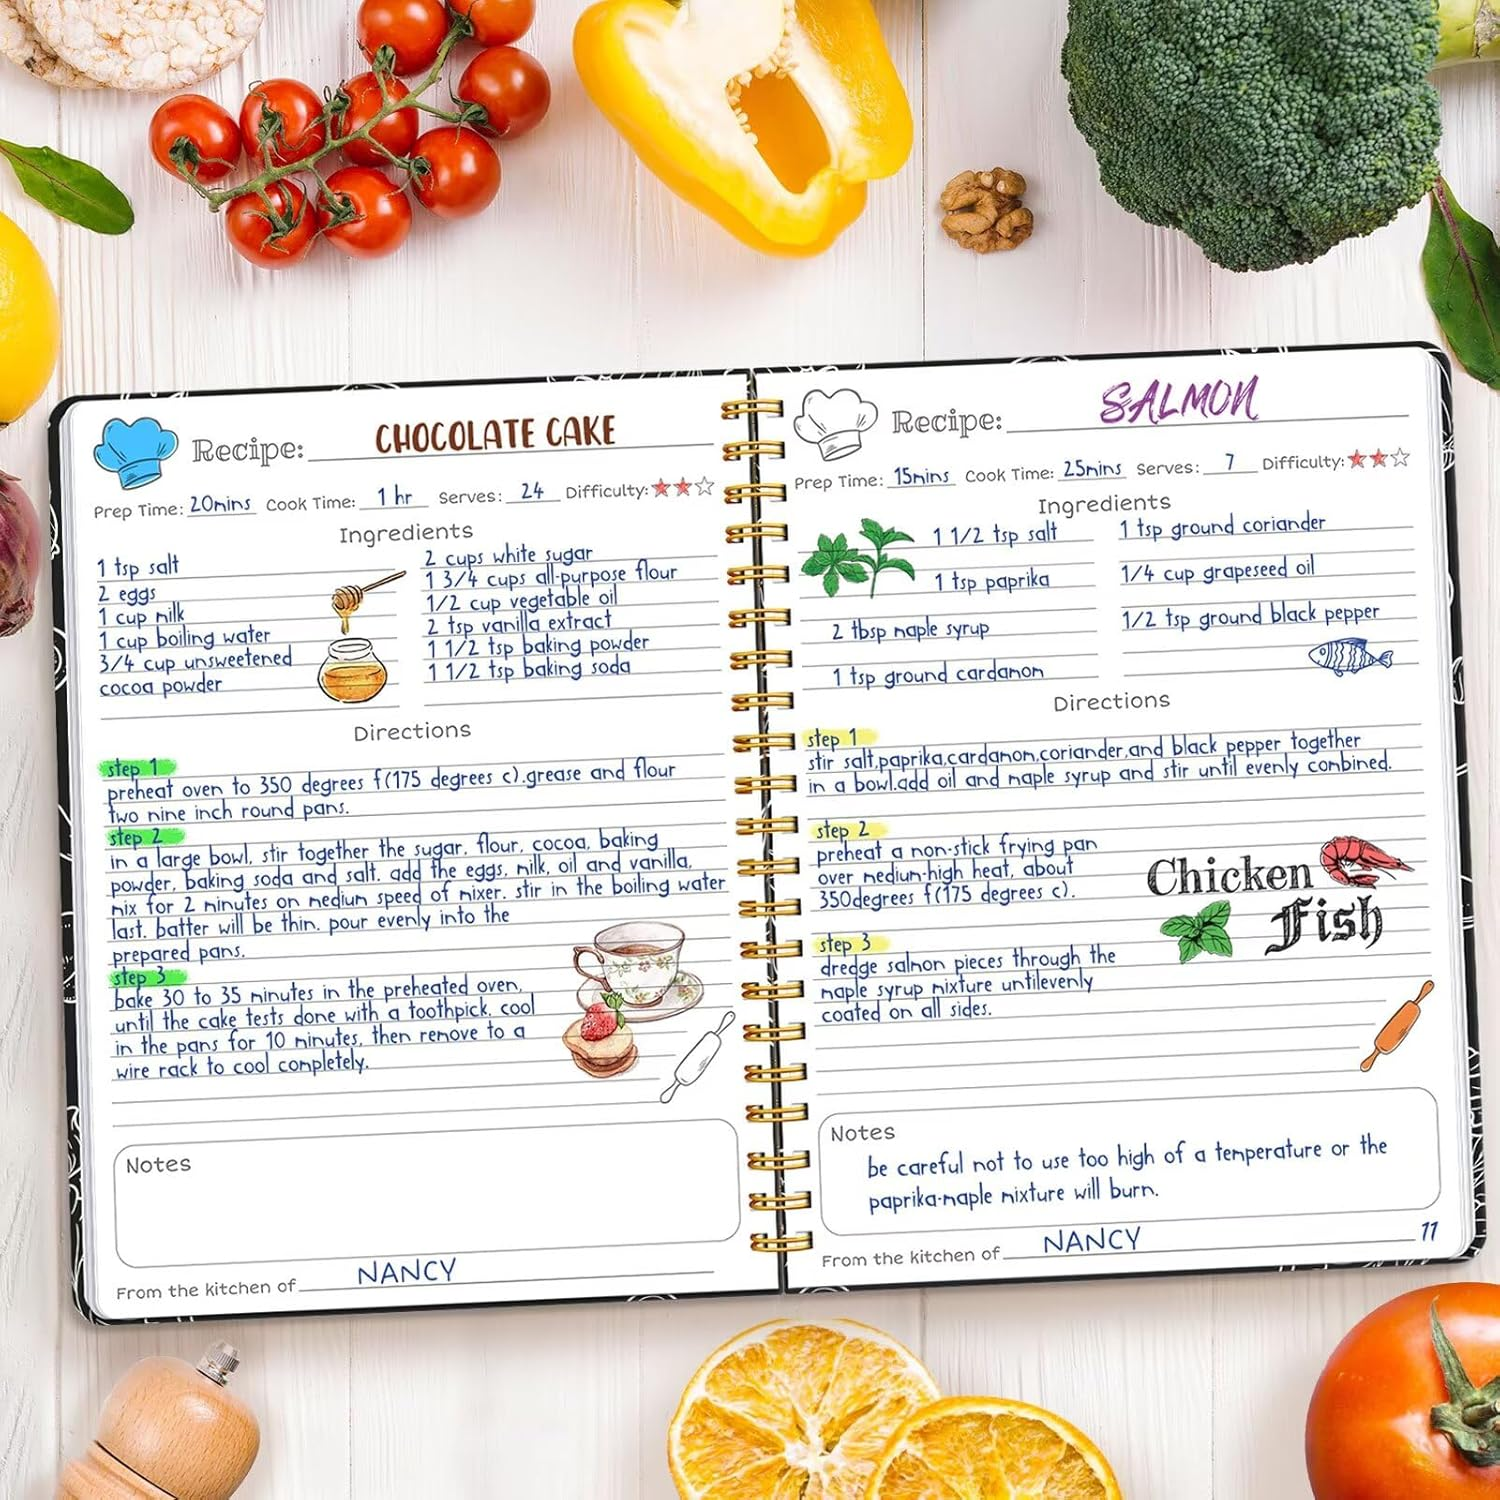 Recipe: CHOCOLATE CAKE
Prep Time: 20mins Cook Time: 1 hr Serves: 24 Difficulty:
Ingredients
1 tsp salt
2 eggs
1 cup milk
1 cup boiling water
3/4 cup unsweetened
cocoa powder
2 cups white sugar
1 3/4 cups all-purpose flour
1/2 cup vegetable oil
2 tsp vanilla extract
1 1/2 tsp baking powder
1 1/2 tsp baking soda
Directions
step 1
preheat oven to 350 degrees f(175 degrees c).grease and flour
two nine inch round pans.
step 2
in a large bowl, stir together the sugar, flour, cocoa, baking
powder, baking soda and salt. add the eggs, milk, oil and vanilla,
mix for 2 minutes on medium speed of mixer. stir in the boiling water
last. batter will be thin. pour evenly into the
prepared pans.
step 3
bake 30 to 35 minutes in the preheated oven,
until the cake tests done with a toothpick. cool
in the pans for 10 minutes, then remove to a
wire rack to cool completely.
Notes
From the kitchen of NANCY
Recipe: SALMON
Prep Time: 15mins Cook Time: 25mins Serves: 7 Difficulty:
Ingredients
1 1/2 tsp salt
1 tsp paprika
2 tbsp maple syrup
1 tsp ground cardamon
1 tsp ground coriander
1/4 cup grapeseed oil
1/2 tsp ground black pepper
Directions
step 1
stir salt,paprika,cardamon,coriander,and black pepper together
in a bowl.add oil and maple syrup and stir until evenly combined.
step 2
preheat a non-stick frying pan
over medium-high heat, about
350degrees f(175 degrees c).
Chicken
Fish
step 3
dredge salmon pieces through the
maple syrup mixture untilevenly
coated on all sides.
Notes
be careful not to use too high of a temperature or the
paprika-maple mixture will burn.
From the kitchen of NANCY
11